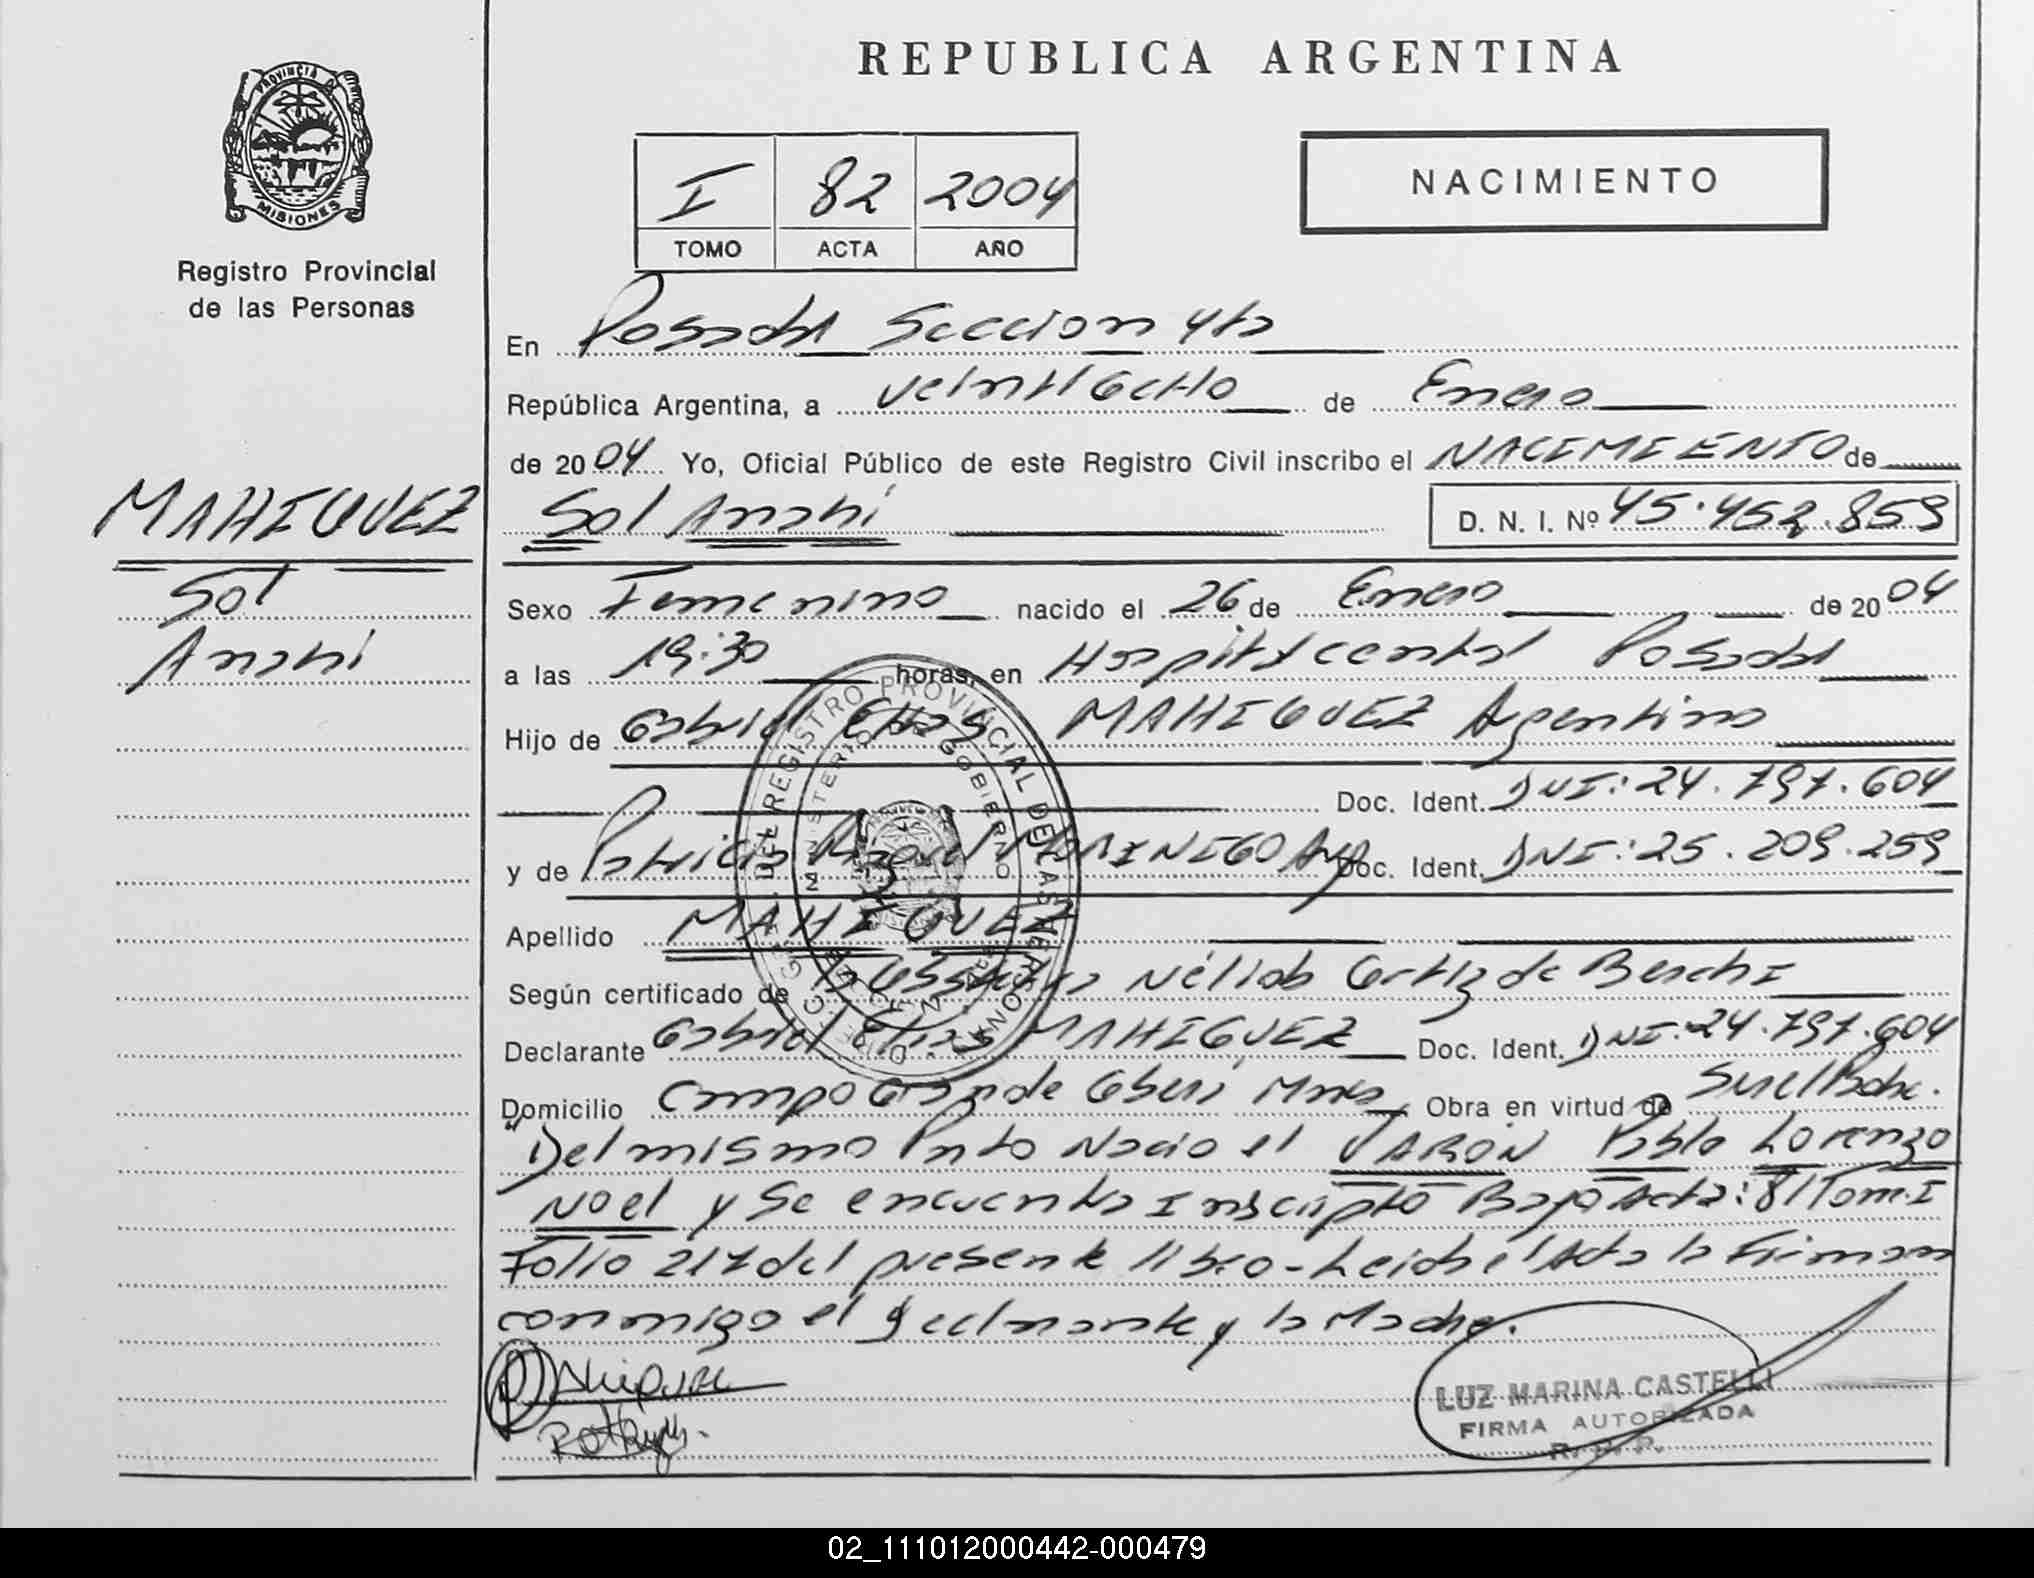 REPUBLICA ARGENTINA
PROVINCIA DE
MISIONES
Registro Provincial
de las Personas
I 82 2004
TOMO ACTA AÑO
NACIMIENTO
En Posadas Seccion 4ta
República Argentina, a veintiocho de Enero
de 2004 Yo, Oficial Público de este Registro Civil inscribo el NACIMIENTO de
MAHIQUEZ
Sol Anahi D. N. I. Nº 45.452.859
Sol
Anahi
Sexo Femenino nacido el 26 de Enero de 2004
a las 19:30 horas, en Hospital central Posadas
Hijo de Gabriel Elias MAHIQUEZ Argentino
Doc. Ident. DNI: 24.797.604
y de Patricia MORINIGO Arg Doc. Ident. DNI: 25.209.259
Apellido MAHIQUEZ
Según certificado de Nélida Ortiz de Berchi
Declarante Gabriel Elias MAHIQUEZ Doc. Ident. DNI: 24.797.604
Domicilio Campo Grande Oberá Mnes Obra en virtud de
Del mismo Parto Nacio el VARON Pablo Lorenzo
Noel y Se encuentra Inscripto Bajo Acta: 81 Tom. I
Folio 217 del presente libro - Leida el Acta la Firman
conmigo el Declarante y la Madre.
DIREC. GEN. DEL REGISTRO PROVINCIAL DE LAS PERSONAS
MINISTERIO DE GOBIERNO
LUZ MARINA CASTELLI
FIRMA AUTORIZADA
R. P. P.
02_111012000442-000479